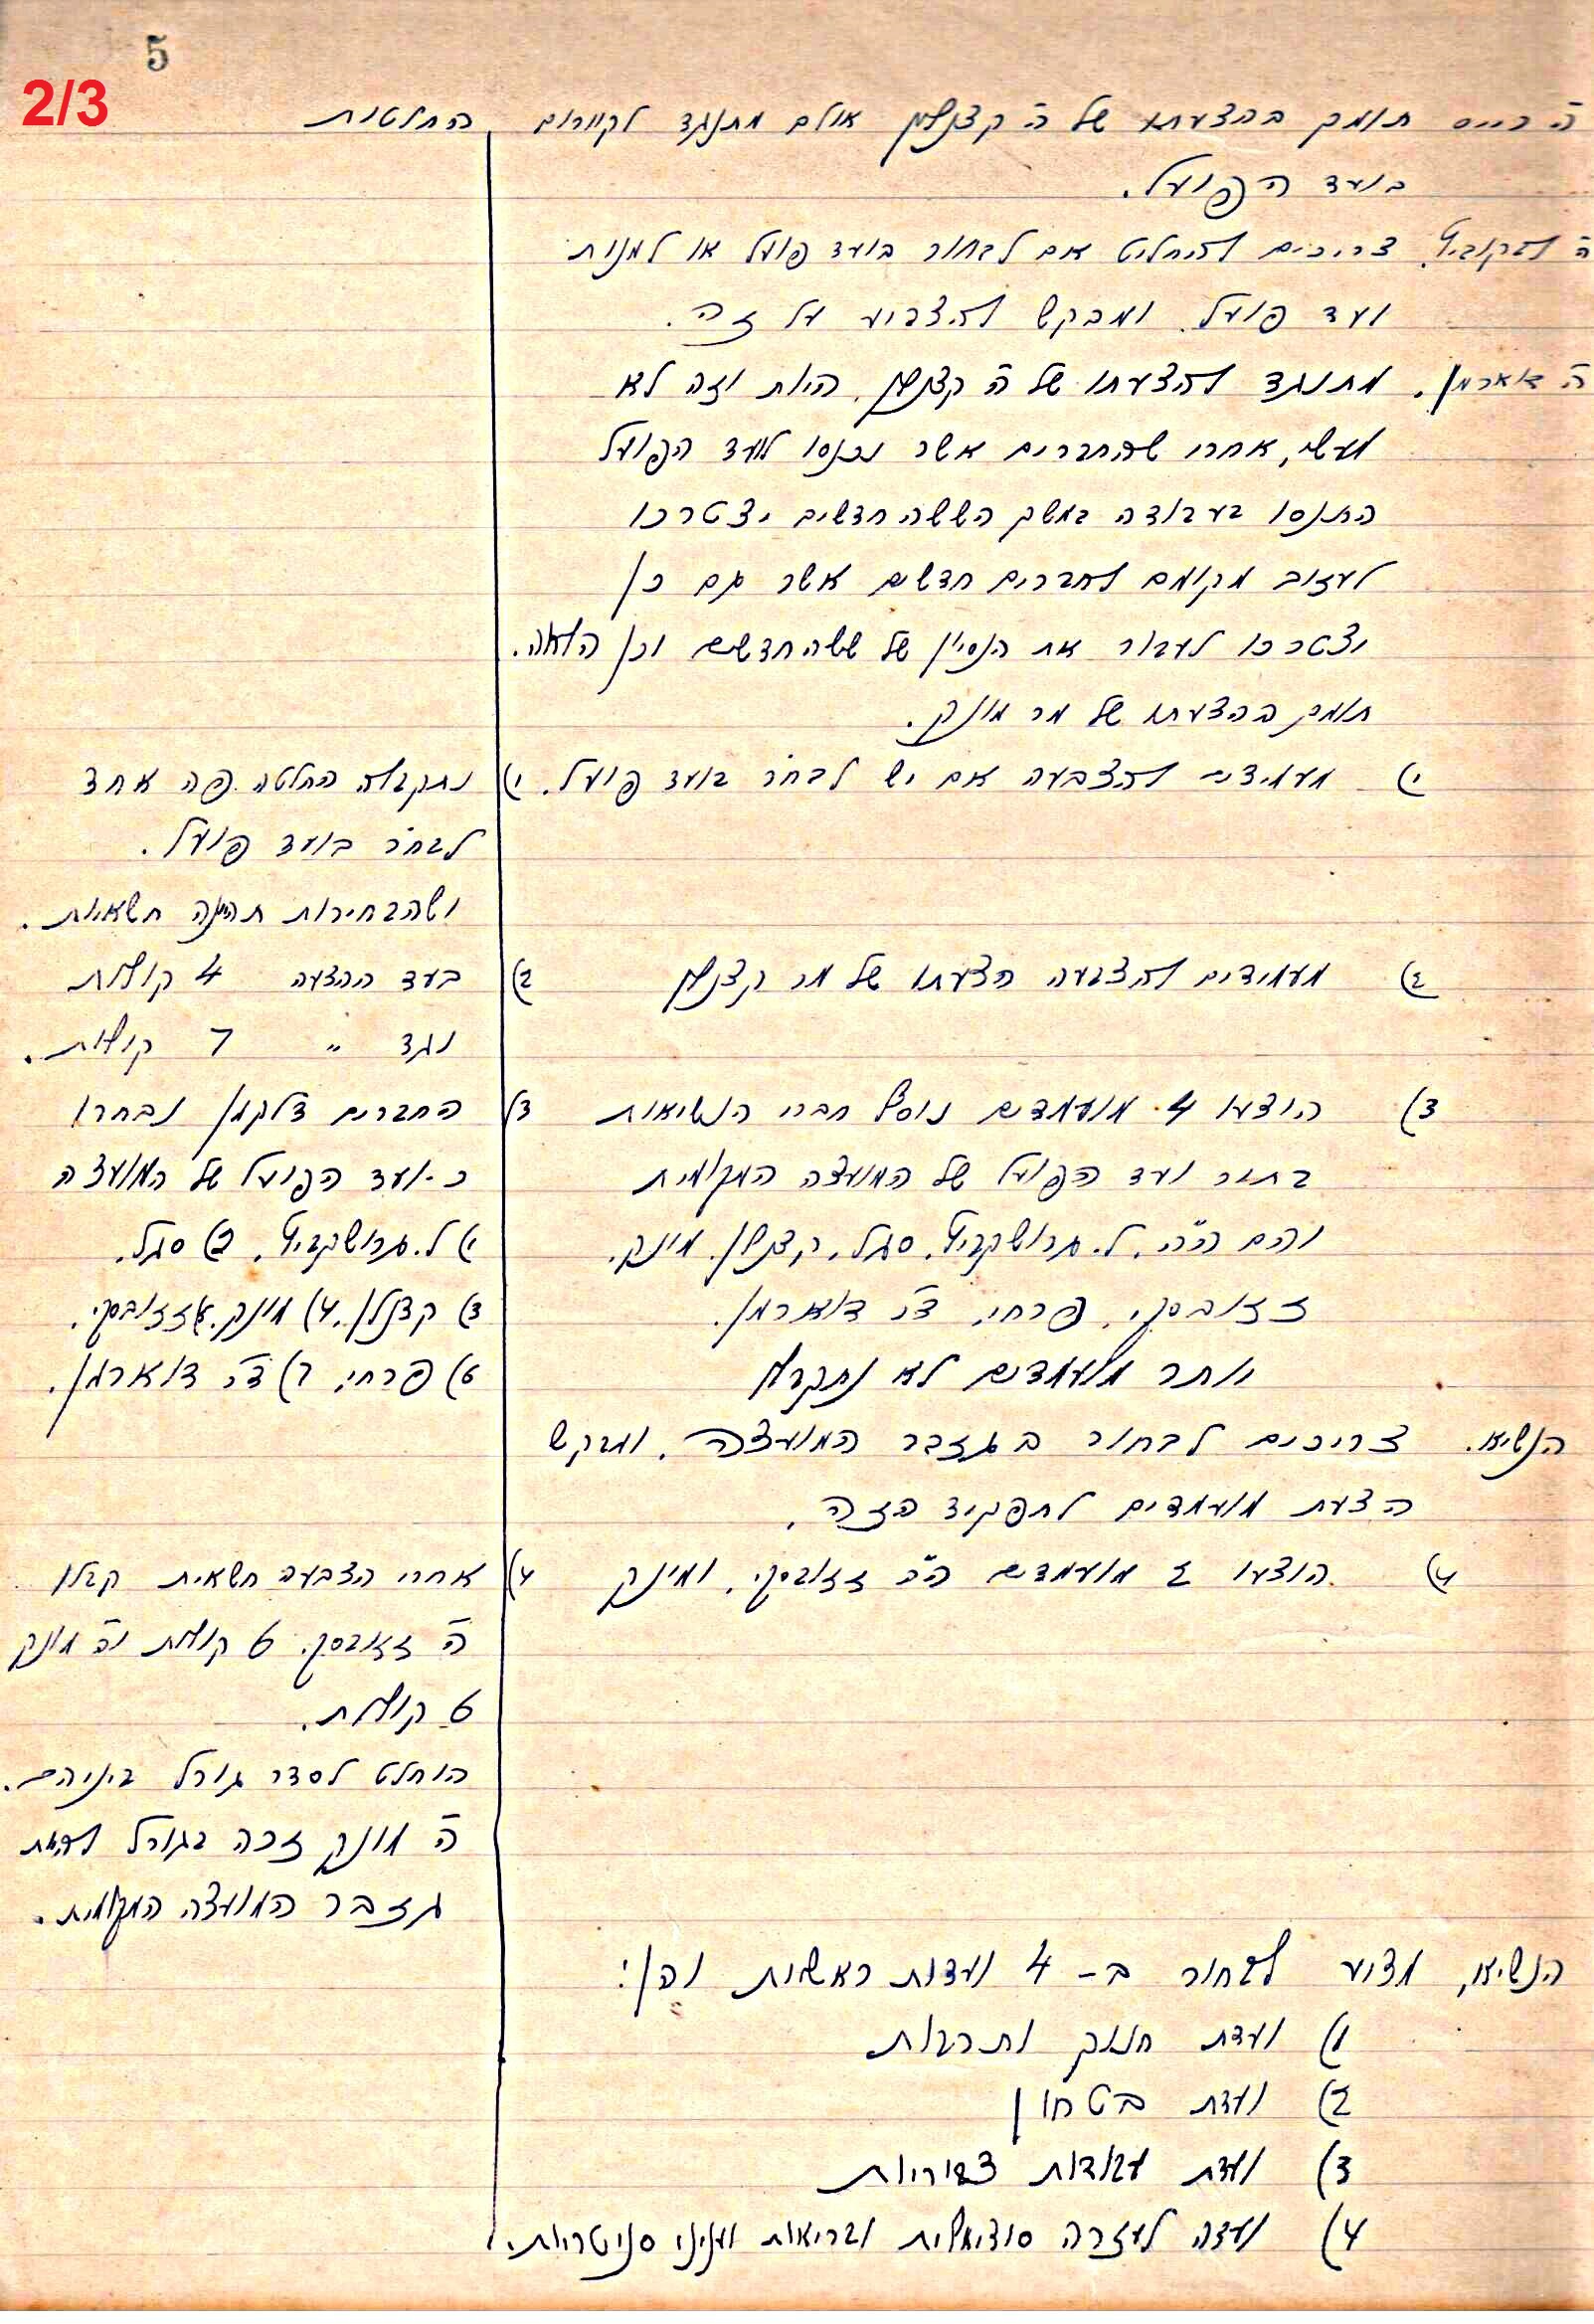 5
2/3
החלטות
ה' רייס תומך בהצעתו של ה' קצנלסון אולם מתנגד לקוורום
בועד הפועל.
צריכים להחליט אם לבחור בועד פועל או למנות
ועד פועל. ומבקש להצביע על זה.
ה' דוארמן. מתנגד להצעתו של ה' קצנלסון. היות וזה לא
מעשי, אחרי שהחברים אשר נכנסו לועד הפועל
התנסו בעבודה במשך הששה חדשים יצטרכו
לעזוב מקומם לחברים חדשים אשר גם כן
יצטרכו לעבור את הנסיון של ששה חדשים וכן הלאה.
תומך בהצעתו של מר מונק.
1) מעמידים להצבעה אם יש לבחר בועד פועל.
1) נתקבלה החלטה פה אחד
לבחר בועד פועל.
ושהבחירות תהינה חשאיות.
2) מעמידים להצבעה הצעתו של מר קצנלסון
2) בעד ההצעה 4 קולות
נגד " 7 קולות.
3) הוצעו 4 מועמדים נוסף חברי הנשיאות
בתור ועד הפועל של המועצה המקומית
והם ה"ה. ל. גרושקביץ, סגל, קצנלסון, מונק,
זזובסקי, פרחי, ד"ר דוארמן.
יותר מועמדים לא נתקבלו
3) החברים דלקמן נבחרו
כ-ועד הפועל של המועצה
1) ל. גרושקביץ, 2) סגל,
3) קצנלסון, 4) מונק, 5) זזובסקי,
6) פרחי, 7) ד"ר דוארמן.
הנשיא. צריכים לבחור בגזבר המועצה. ומבקש
הצעת מועמדים לתפקיד הזה.
4) הוצעו 2 מועמדים ה"ה זזובסקי, ומונק
4) אחרי הצבעה חשאית קבלו
ה' זזובסקי 6 קולות וה' מונק
6 קולות.
הוחלט לסדר גורל ביניהם.
ה' מונק זכה בגורל להיות
גזבר המועצה המקומית.
הנשיא, מציע לבחור ב-4 ועדות ראשיות והן:
1) ועדת חנוך ותרבות
2) ועדת בטחון
3) ועדת עבודות צבוריות
4) ועדה לעזרה סוציאלית ובריאות ועניני סניטריות.